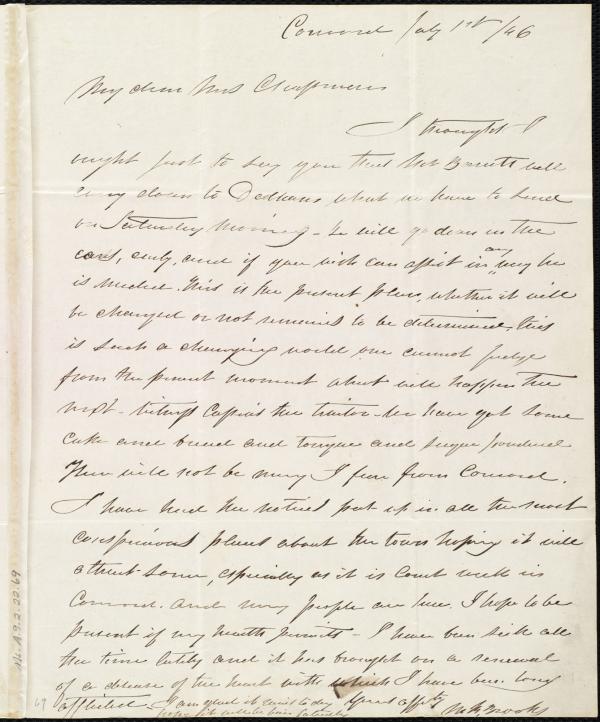 Concord July 1st /46
My dear Mrs Chapman
I thought I
ought just to say you that Mr Barrett will
carry down to Dedham what we have to send
on Saturday Morning - he will go down in the
cars, early, and if you wish can assist in any way he
is needed. This is the present plan, whether it will
be changed or not remains to be determined, this
is such a changing world one cannot judge
from the present moment what will happen the
next - the traitor - We have got some
cake and bread and tongue and sugar
There will not be many I fear from Concord.
I have had the notices put up in all the most
conspicuous places about the town hoping it will
attract some, especially as it is Court week in
Concord. and many people are here. I hope to be
present if my health permits - I have been sick all
the time lately and it has brought on a renewal
of a disease of the heart with which I have been long
afflicted I am glad it rains to day
hope it will be fair Saturday
Yours affly
M M Brooks
Ms. A.9.2.22.69
69